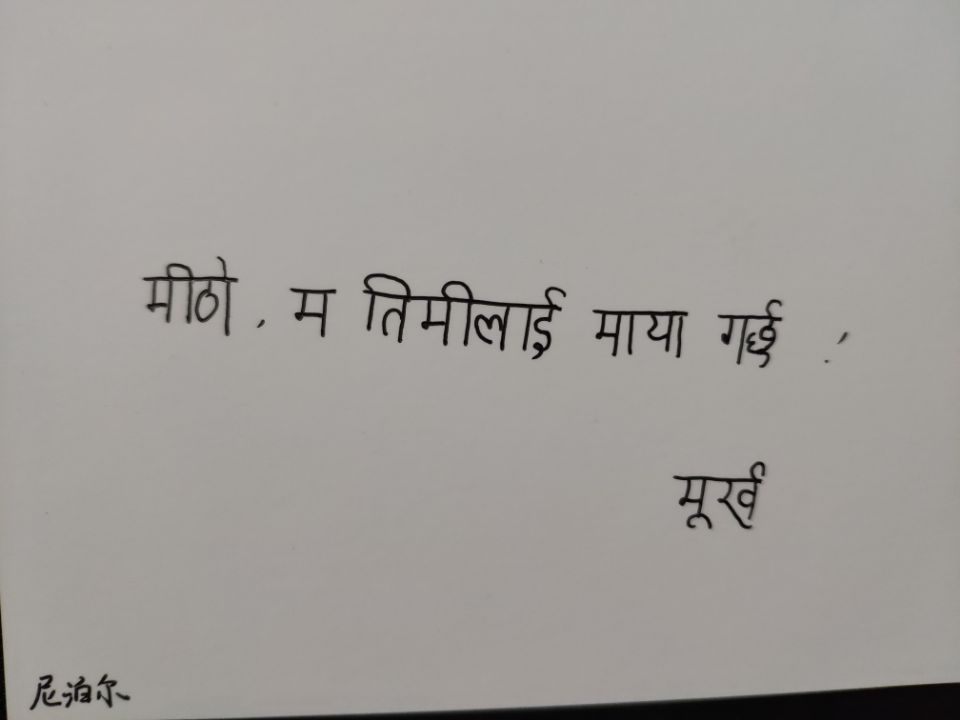 मीठो, म तिमीलाई माया गर्छु !
मूर्ख
尼泊尔